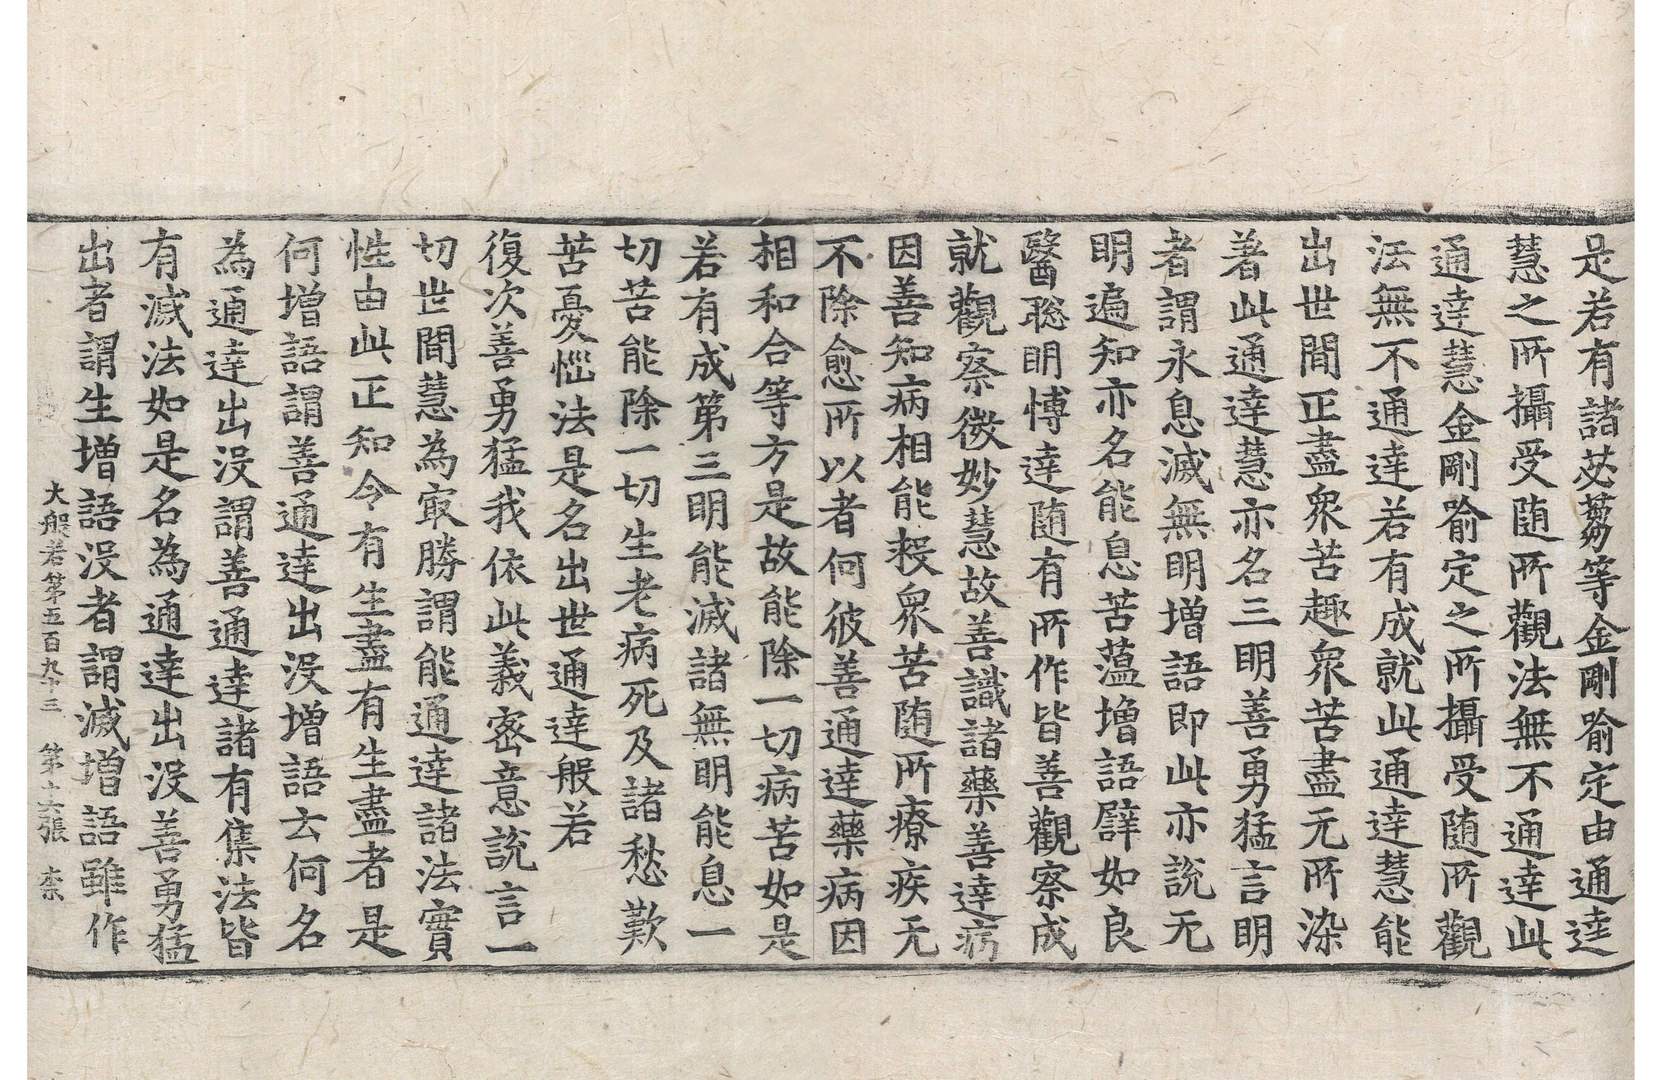 是若有諸苾芻等金剛喻定由通達
慧之所攝受随所觀法無不通達此
通達慧金剛喻定之所攝受随所觀
法無不通達若有成就此通達慧能
出世間正盡衆苦趣衆苦盡无所染
著此通達慧亦名三明善勇猛言明
者謂永息滅無明增語即此亦說无
明遍知亦名能息苦蕰增語譬如良
醫聡明博達随有所作皆善觀察成
就觀察微妙慧故善識諸藥善達病
因善知病相能救衆苦随所療疾无
不除愈所以者何彼善通達藥病因
相和合等方是故能除一切病苦如是
若有成第三明能滅諸無明能息一
切苦能除一切生老病死及諸愁歎
苦憂惱法是名出世通達般若
復次善勇猛我依此義密意說言一
切世間慧為寂勝謂能通達諸法實
性由此正知令有生盡有生盡者是
何增語謂善通達出沒增語云何名
為通達出沒謂善通達諸有集法皆
有滅法如是名為通達出沒善勇猛
出者謂生增語沒者謂滅增語雖作
大般若第五百九十三 第十六張 柰